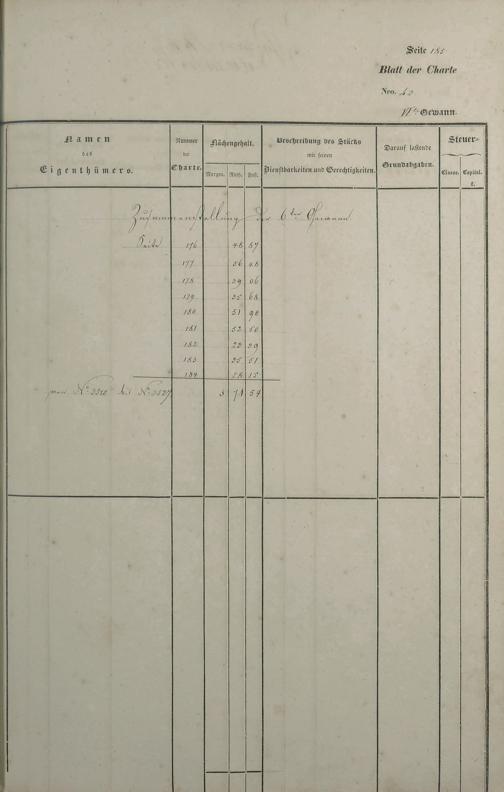 Seite 185
Blatt der Charte
Nro. 40
VIte Gewann.
Namen des Eigenthümers.
Nummer der Charte.
Flächengehalt.
Morgen. Ruth. Fuß.
Beschreibung des Stücks mit seinen Dienstbarkeiten und Gerechtigkeiten.
Darauf lastende Grundabgaben.
Steuer-
Classe. Capital.
fl.
Zusammenstellung der 6ten Gewann
Seite 176 48 57
177 36 48
178 29 06
179 35 68
180 51 98
181 52 50
182 23 39
183 35 51
184 58 15
von No bis No 3 71 54